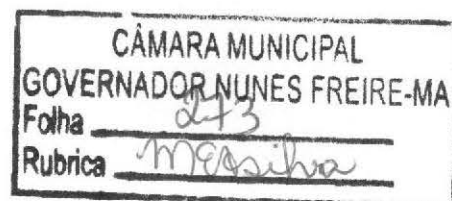 CÂMARA MUNICIPAL
GOVERNADOR NUNES FREIRE-MA
Folha 273
Rubrica